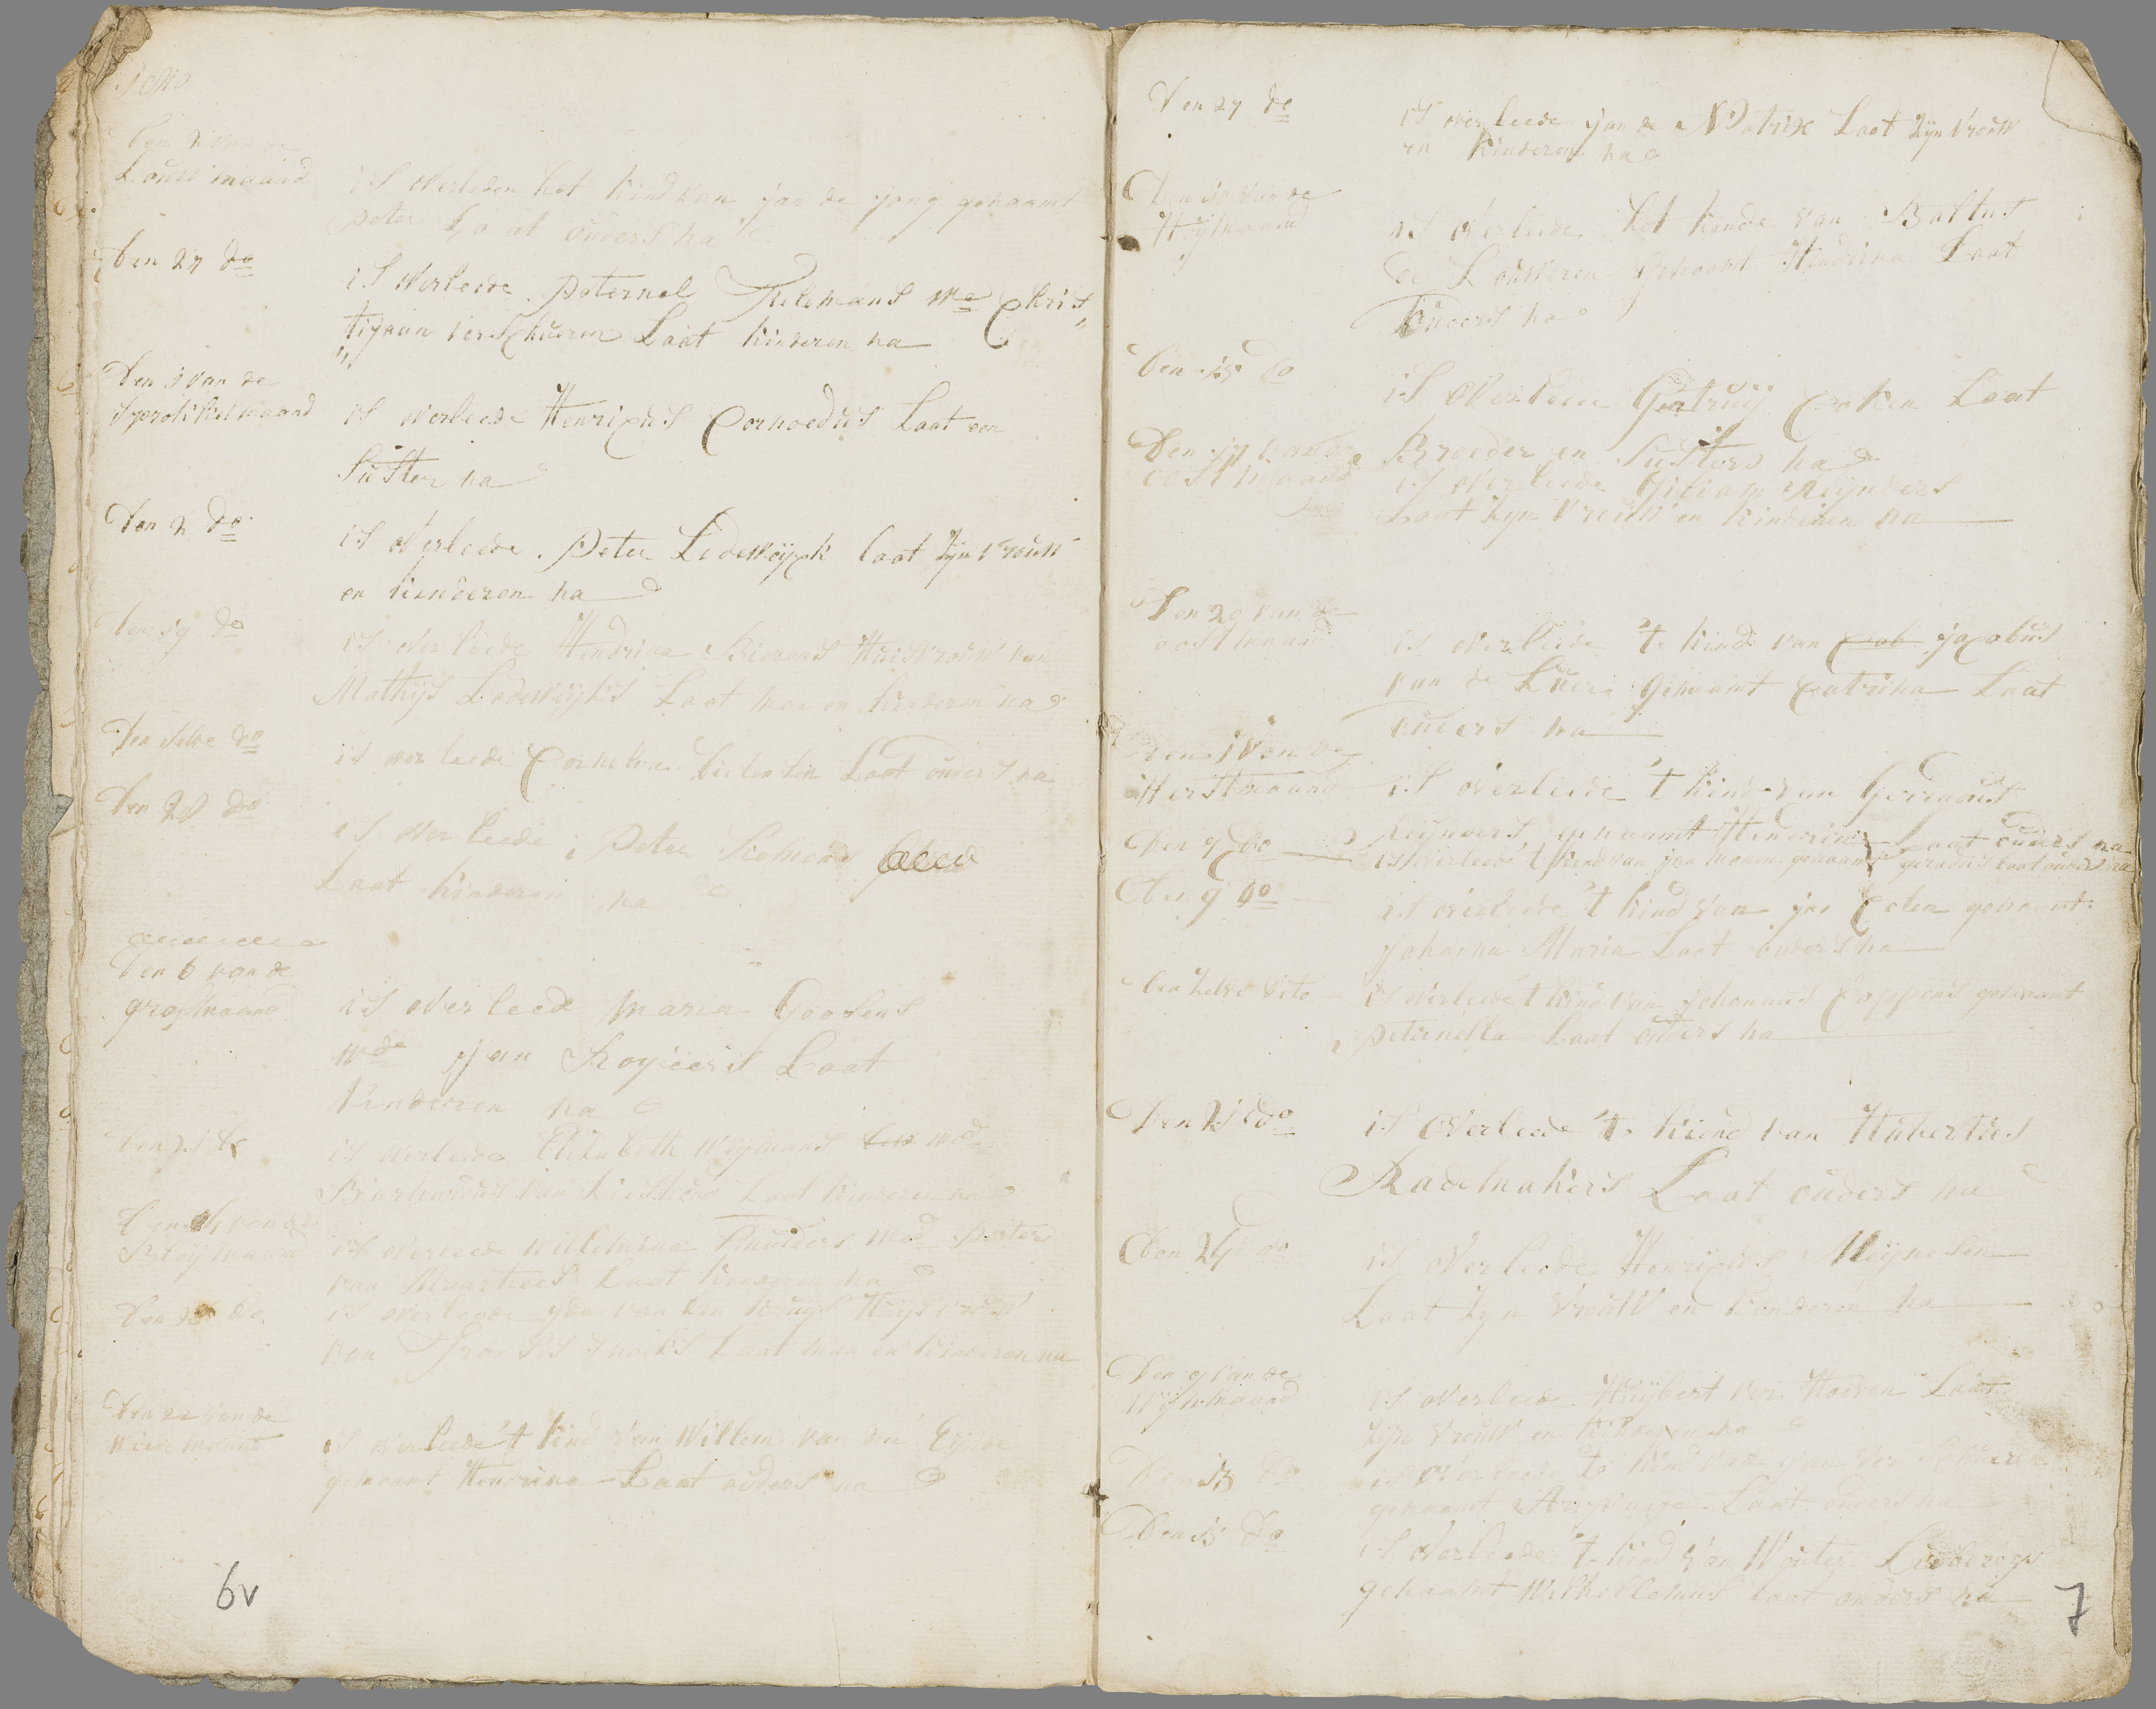 Den 2 van de
Louw maand
is overleden het kind van Jan de Jong genaamt
Peter Laat ouders na
Den 27 do
is overleede Peternel Tielemans we Chris„
„tijaan verschueren Laat kinderen na
Den 1 van de
Sprokkelmaand
is overleede Henricus Cornoedus Laat een
Suster na
Den 2 do
is overleede Peter Lodewijck laat zijn vrouw
en kinderen na
Den 19 do
is overleede Hendrina Bierens Huisvrouw van
Mathijs Lodewijks Laat man en kinderen na
Den selve do
is overleede Cornelia Laat ouders na
Den 28 do
is overleede Peter Siemons
Laat kinderen na
Den 6 van de
grasmaand
is overleede Maria Goosens
wde Jan Rogieers Laat
kinderen na
Den 21 do
is overleede Elisabeth Wijmans wed
van Laat kinderen na
Den van de
Bloijmaand
is overleede Willemina Smulders wed Peeter
van Maarhees Laat kinderen na
Den do
is overleede Ida van den Kruijs Huijsvrouw
van Fransis Snoeks Laat man en kinderen na
Den 22 van de
wiedemaant
is overleede 't kind van Willem van der Eijnde
genaamt Hendrina Laat ouders na
6v
Den 27 do
is overleede Jan de Matrix Laat zijn vrouw
en kinderen na
Den 10 van de
Hoijmaand
is overleede het kinde van Baltus
de Louweren genaamt Hendrina Laat
Ouders na
Den 15 do
is overleede Gertruij Coken Laat
Broeder en Susters na
Den 17 van de
oostmaand
is overleede Giliam Reijnders
Laat zijn vrouw en kinderen na
Den 20 van de
oostmaand
is overleede 't kind van Jacobus
van de Lueer genaamt Catrina Laat
ouders na
Den 1 van de
Herstmaand
is overleede 't kind van Gerardus
Reijnders genaamt Hendrina Laat ouders na
Den 7 do
is overleede 't kind van Jan Monen genaamt gerardus laat ouders na
Den 9 do
is overleede 't kind van Jan Colen genaamt
Johanna Maria Laat ouders na
Den selve dito
is overleede 't kind van Johannus Coppens genaamt
Peternella Laat ouders na
Den 21 do
is overleede 't kiend van Hubertus
Rademakers Laat ouders na
Den 24 do
is overleede Henricus Meijnesen
Laat zijn vrouw en kinderen na
Den 9 van de
Wijnmaand
is overleede Huijbert van Hoesen Laat
zijn vrouw en kinderen na
Den 13 do
is overleede 't kind van Jan verschueren
genaamt Laat ouders na
Den 15 do
is overleede 't kind van Wouter Liebregs
genaamt Wilhellemus laat ouders na
7